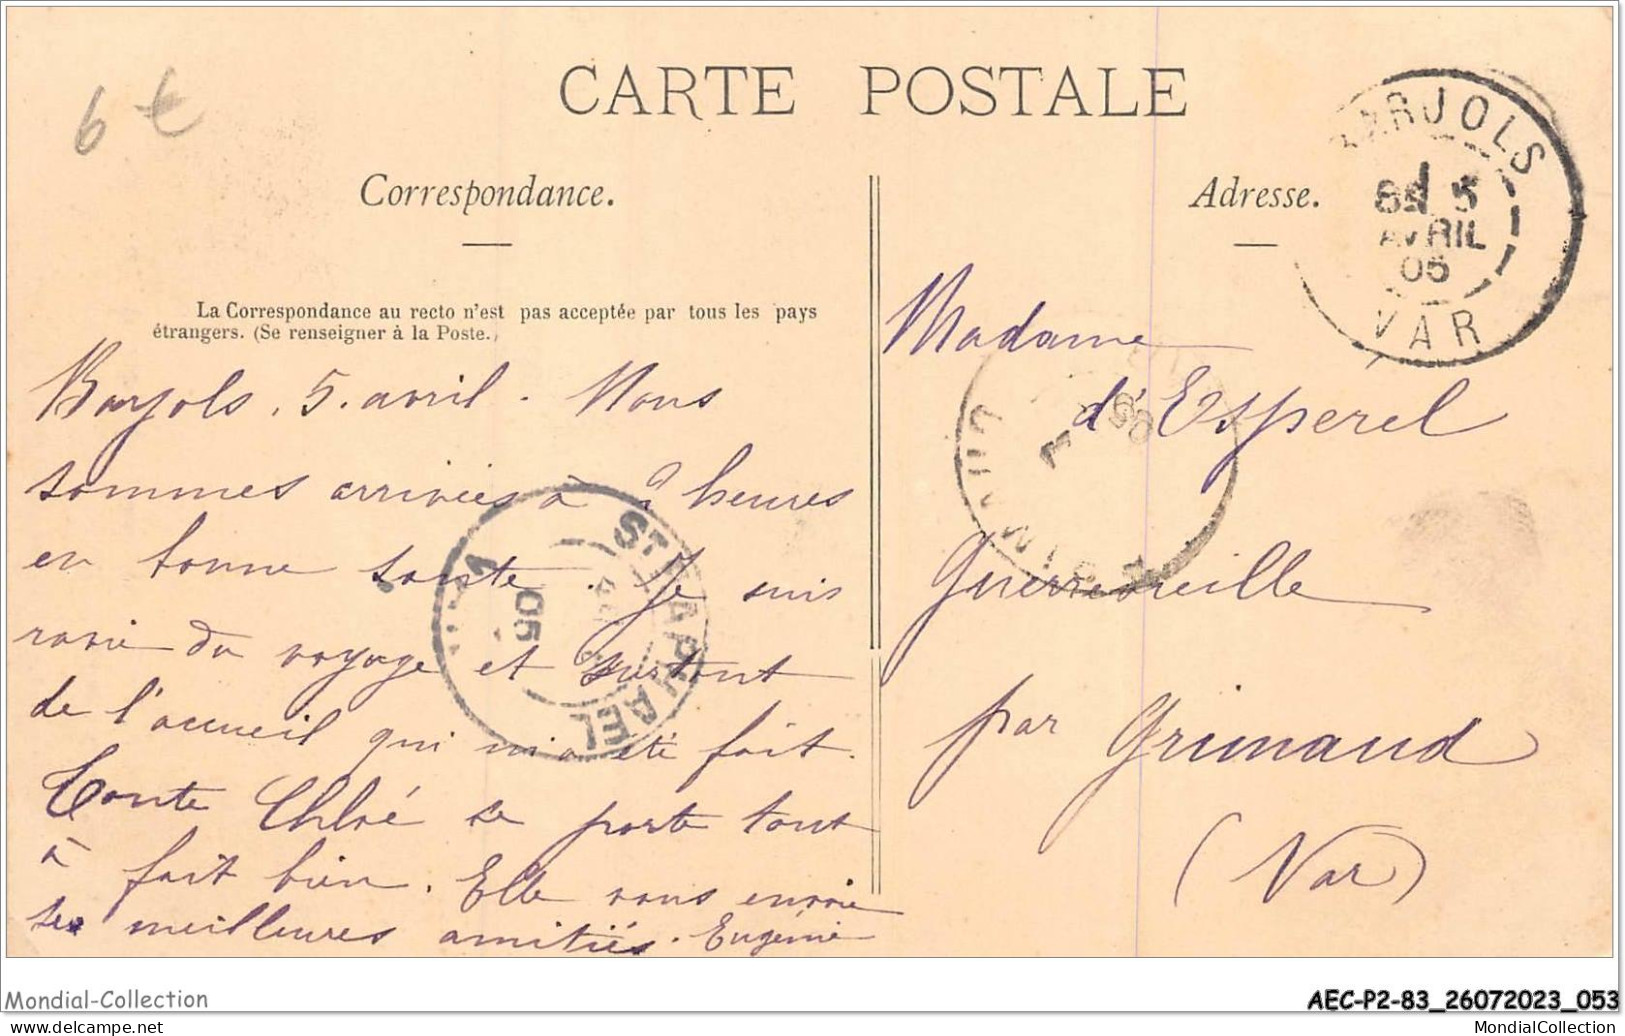 6 €
CARTE POSTALE
Correspondance.
Adresse.
BARJOLS
5
AVRIL
05
VAR
La Correspondance au recto n'est pas acceptée par tous les pays
étrangers. (Se renseigner à la Poste.)
Barjols. 5. avril. Nous
sommes arrivées à 2 heures
en bonne santé. Je suis
ravie du voyage et surtout
de l'accueil qui m'a été fait.
Tante Chloé se porte tout
à fait bien. Elle vous envoie
ses meilleures amitiés. Eugénie
ST RAPHAEL
05
Madame
d'Espérel
Guerrevieille
par Grimaud
(Var)
05
Mondial-Collection
AEC-P2-83_26072023_053
mondial-collection.com
MondialCollection